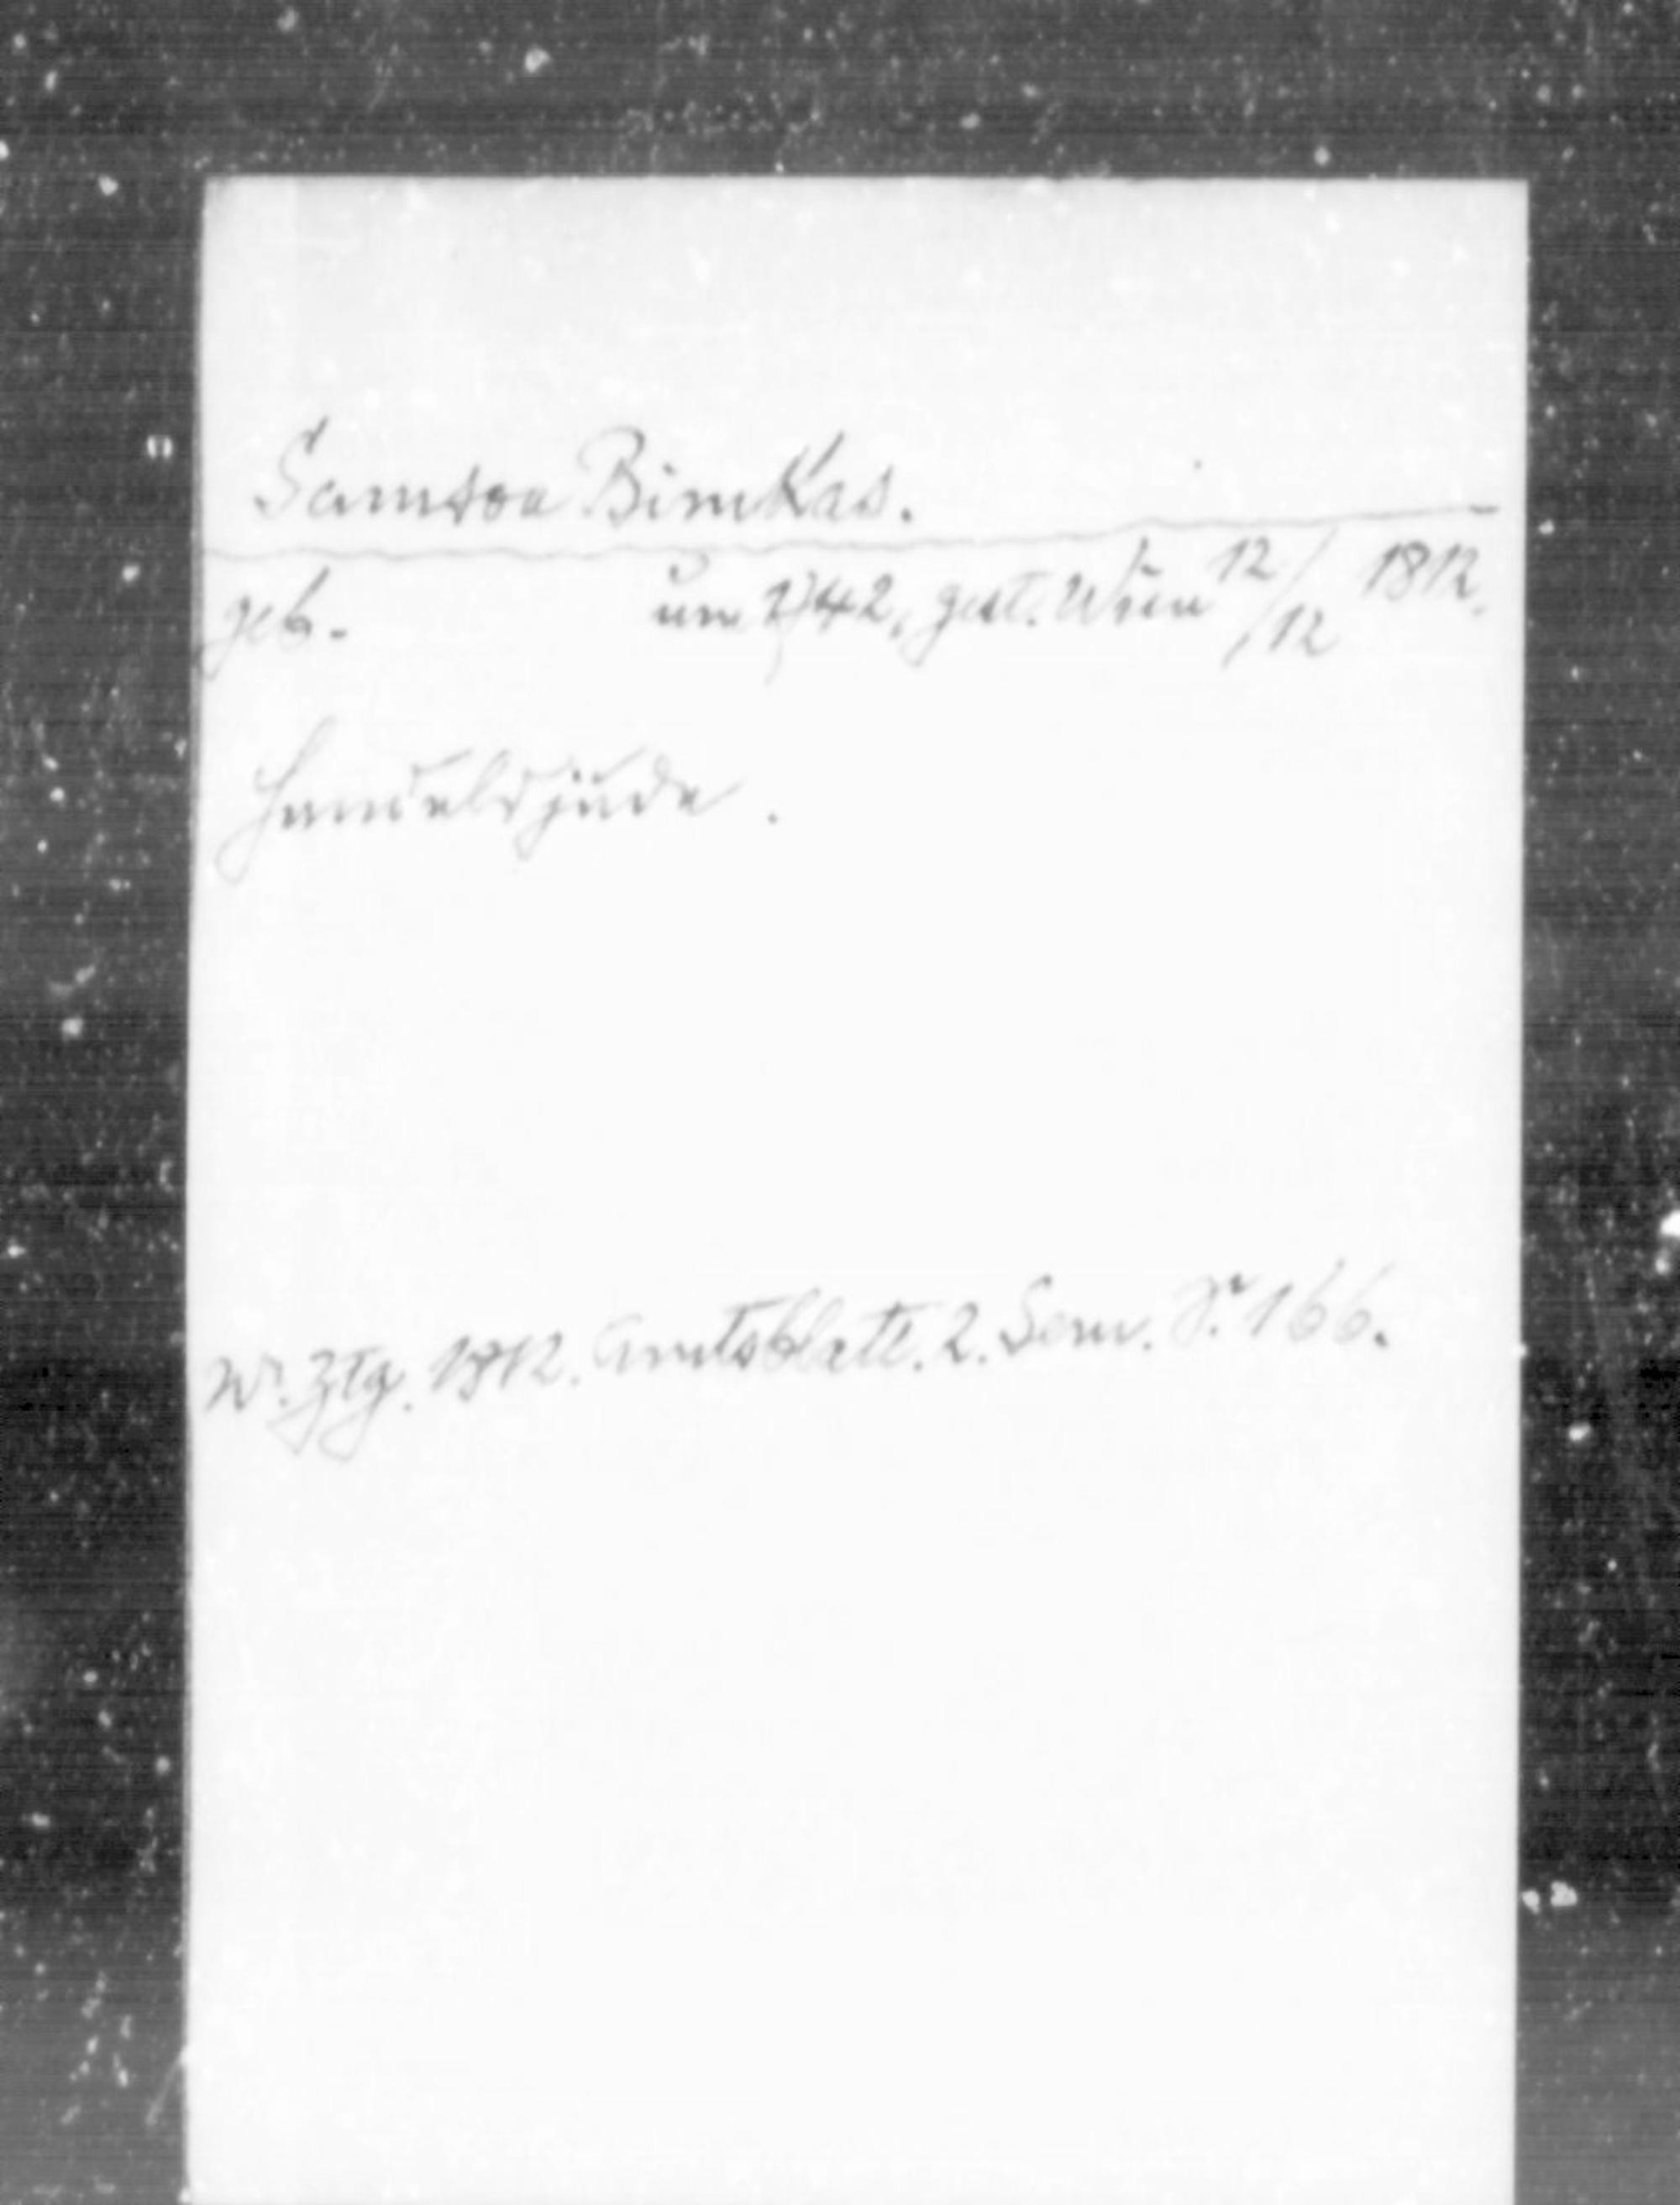 Samson Bimkas.
geb. um 1742, gest. Wien 12/12 1812.
Handelsjude.
Wr. Ztg. 1812. Amtsblatt. 2. Sem. S. 166.